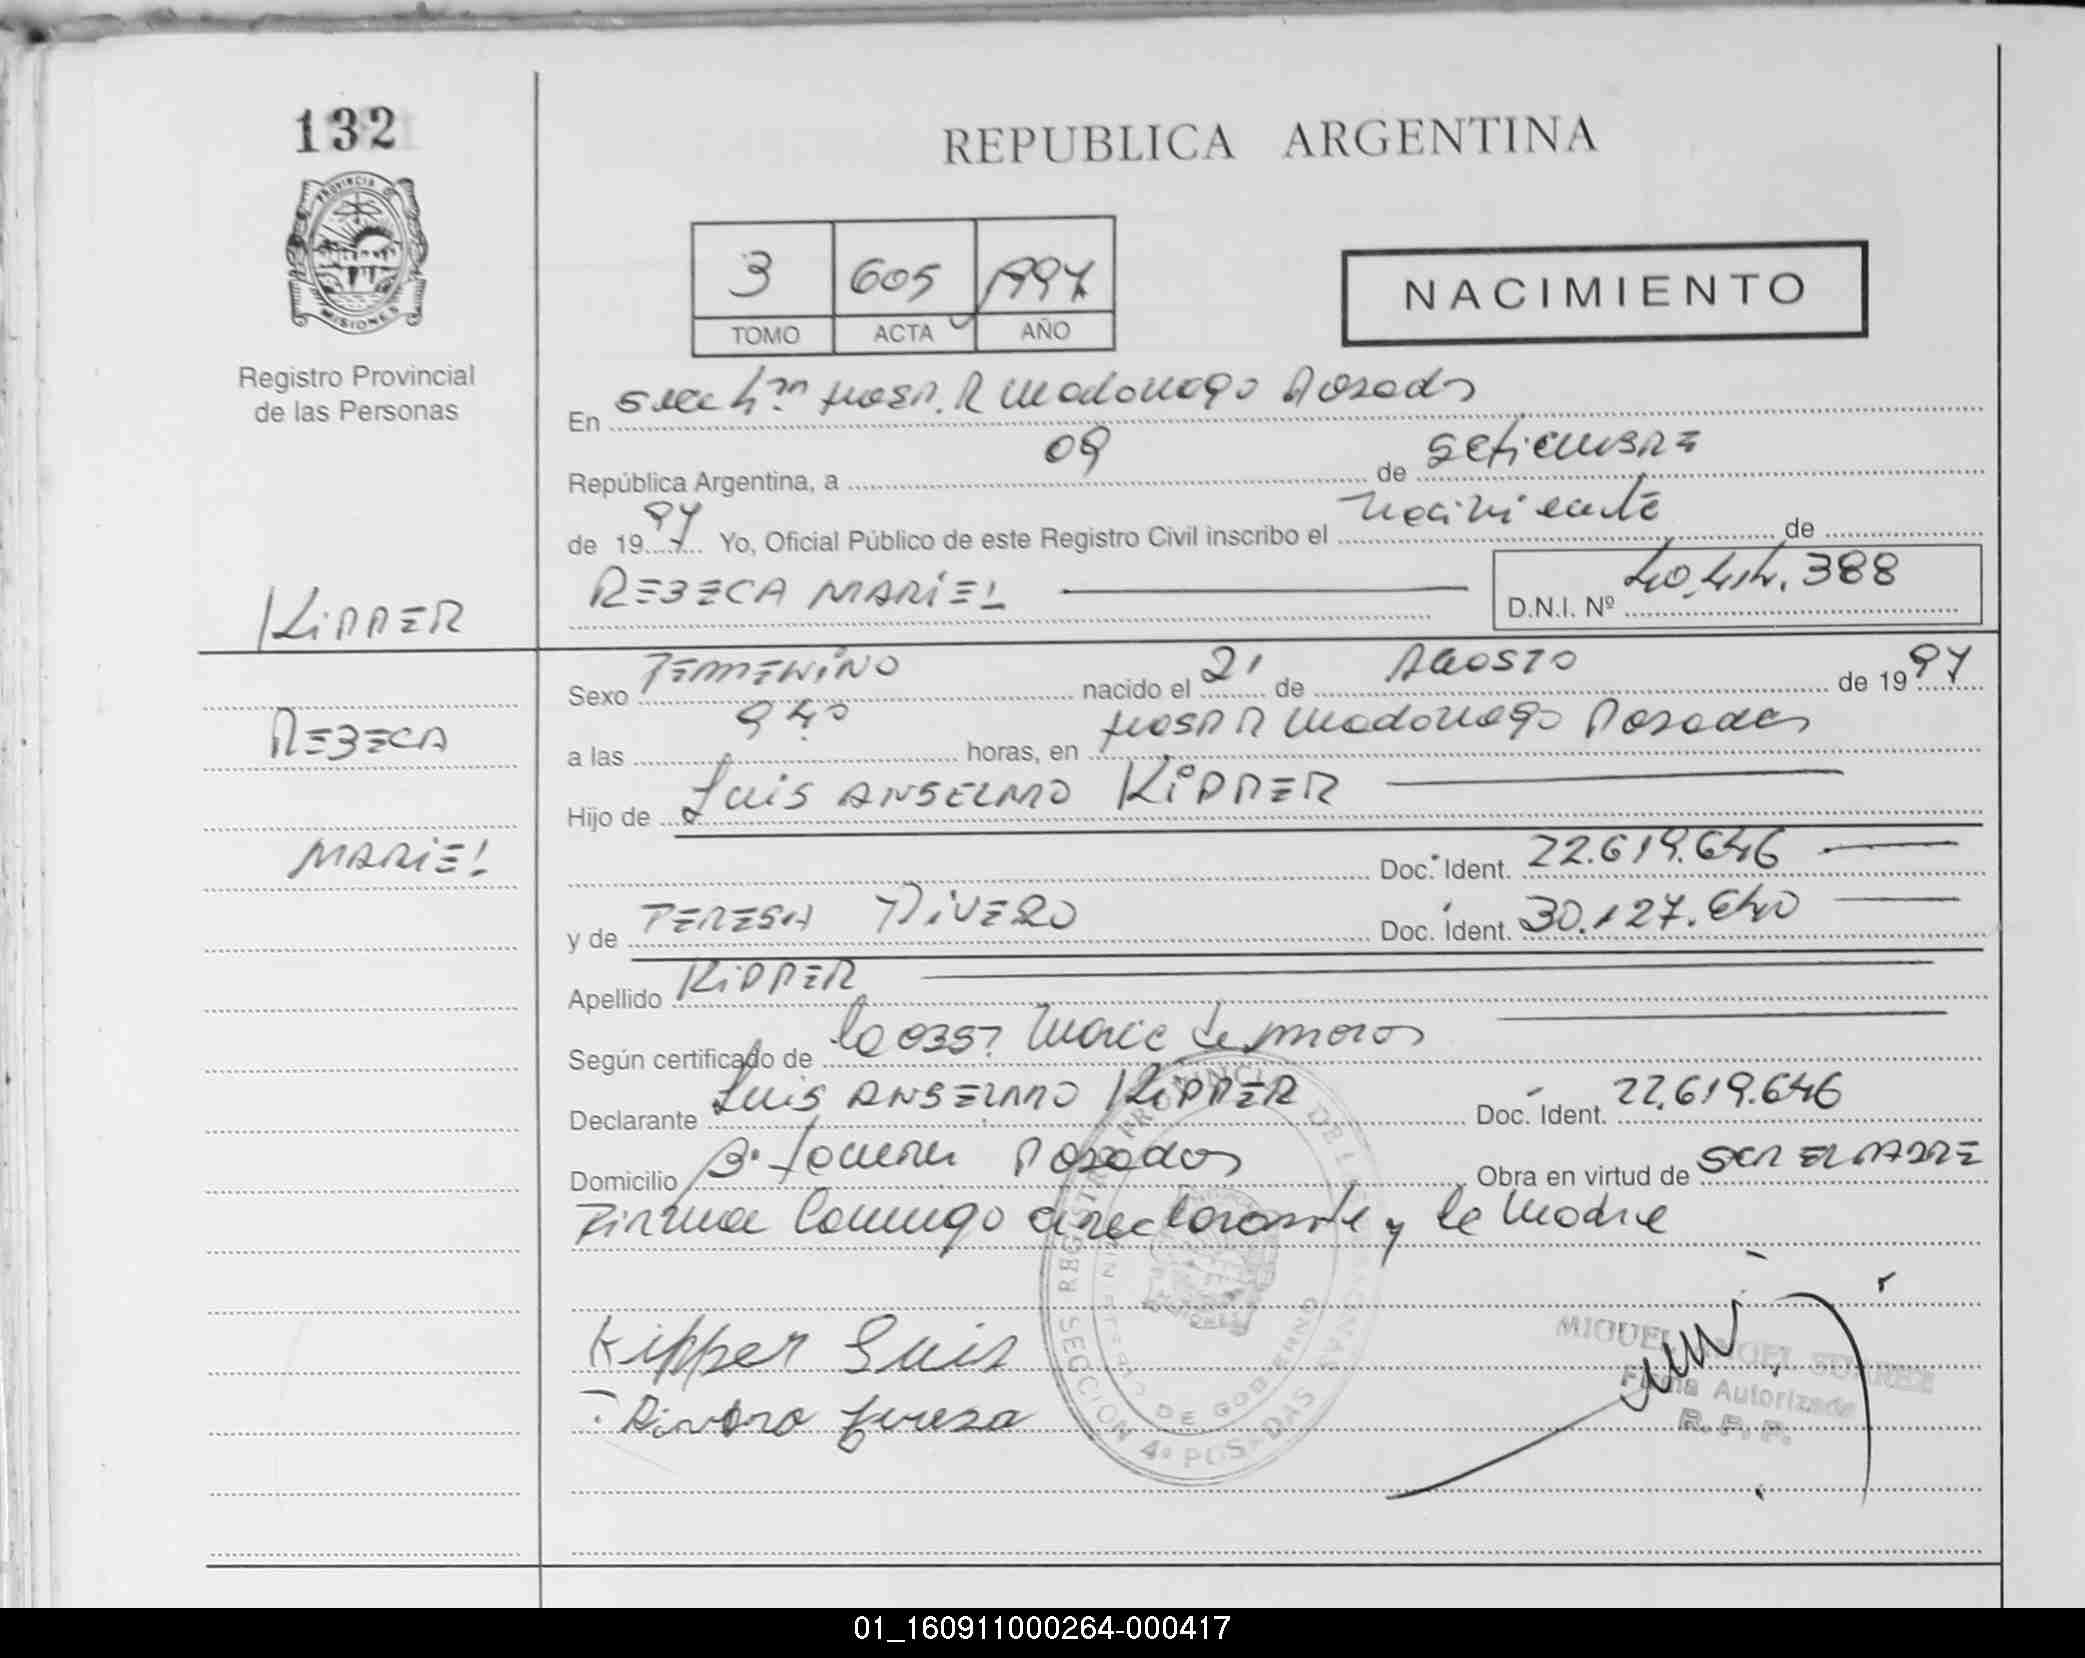 132
REPUBLICA ARGENTINA
PROVINCIA
MISIONES
3 605 1997
TOMO ACTA AÑO
NACIMIENTO
Registro Provincial
de las Personas
En Secc 4ta Hosp. R Madariaga Posadas
República Argentina, a 09 de Setiembre
de 1997 Yo, Oficial Público de este Registro Civil inscribo el nacimiento de
REBECA MARIEL
D.N.I. Nº 40.414.388
KIPPER
REBECA
MARIEL
Sexo FEMENINO nacido el 21 de AGOSTO de 1997
a las 9 40 horas, en Hosp R Madariaga Posadas
Hijo de Luis ANSELMO KIPPER
Doc. Ident. 22.619.646
y de TERESA RIVERO Doc. Ident. 30.127.640
Apellido KIPPER
Según certificado de la obst Maria
Declarante Luis ANSELMO KIPPER Doc. Ident. 22.619.646
Domicilio Bº Posadas Obra en virtud de SER EL PADRE
Firma Conmigo declarante y la Madre
Kipper Luis
Rivero Tereza
REGISTRO PROVINCIAL DE LAS PERSONAS
MINISTERIO DE GOBIERNO
SECCION 4ª POSADAS
MIGUEL ANGEL SUAREZ
Firma Autorizada
R. P. P.
01_160911000264-000417